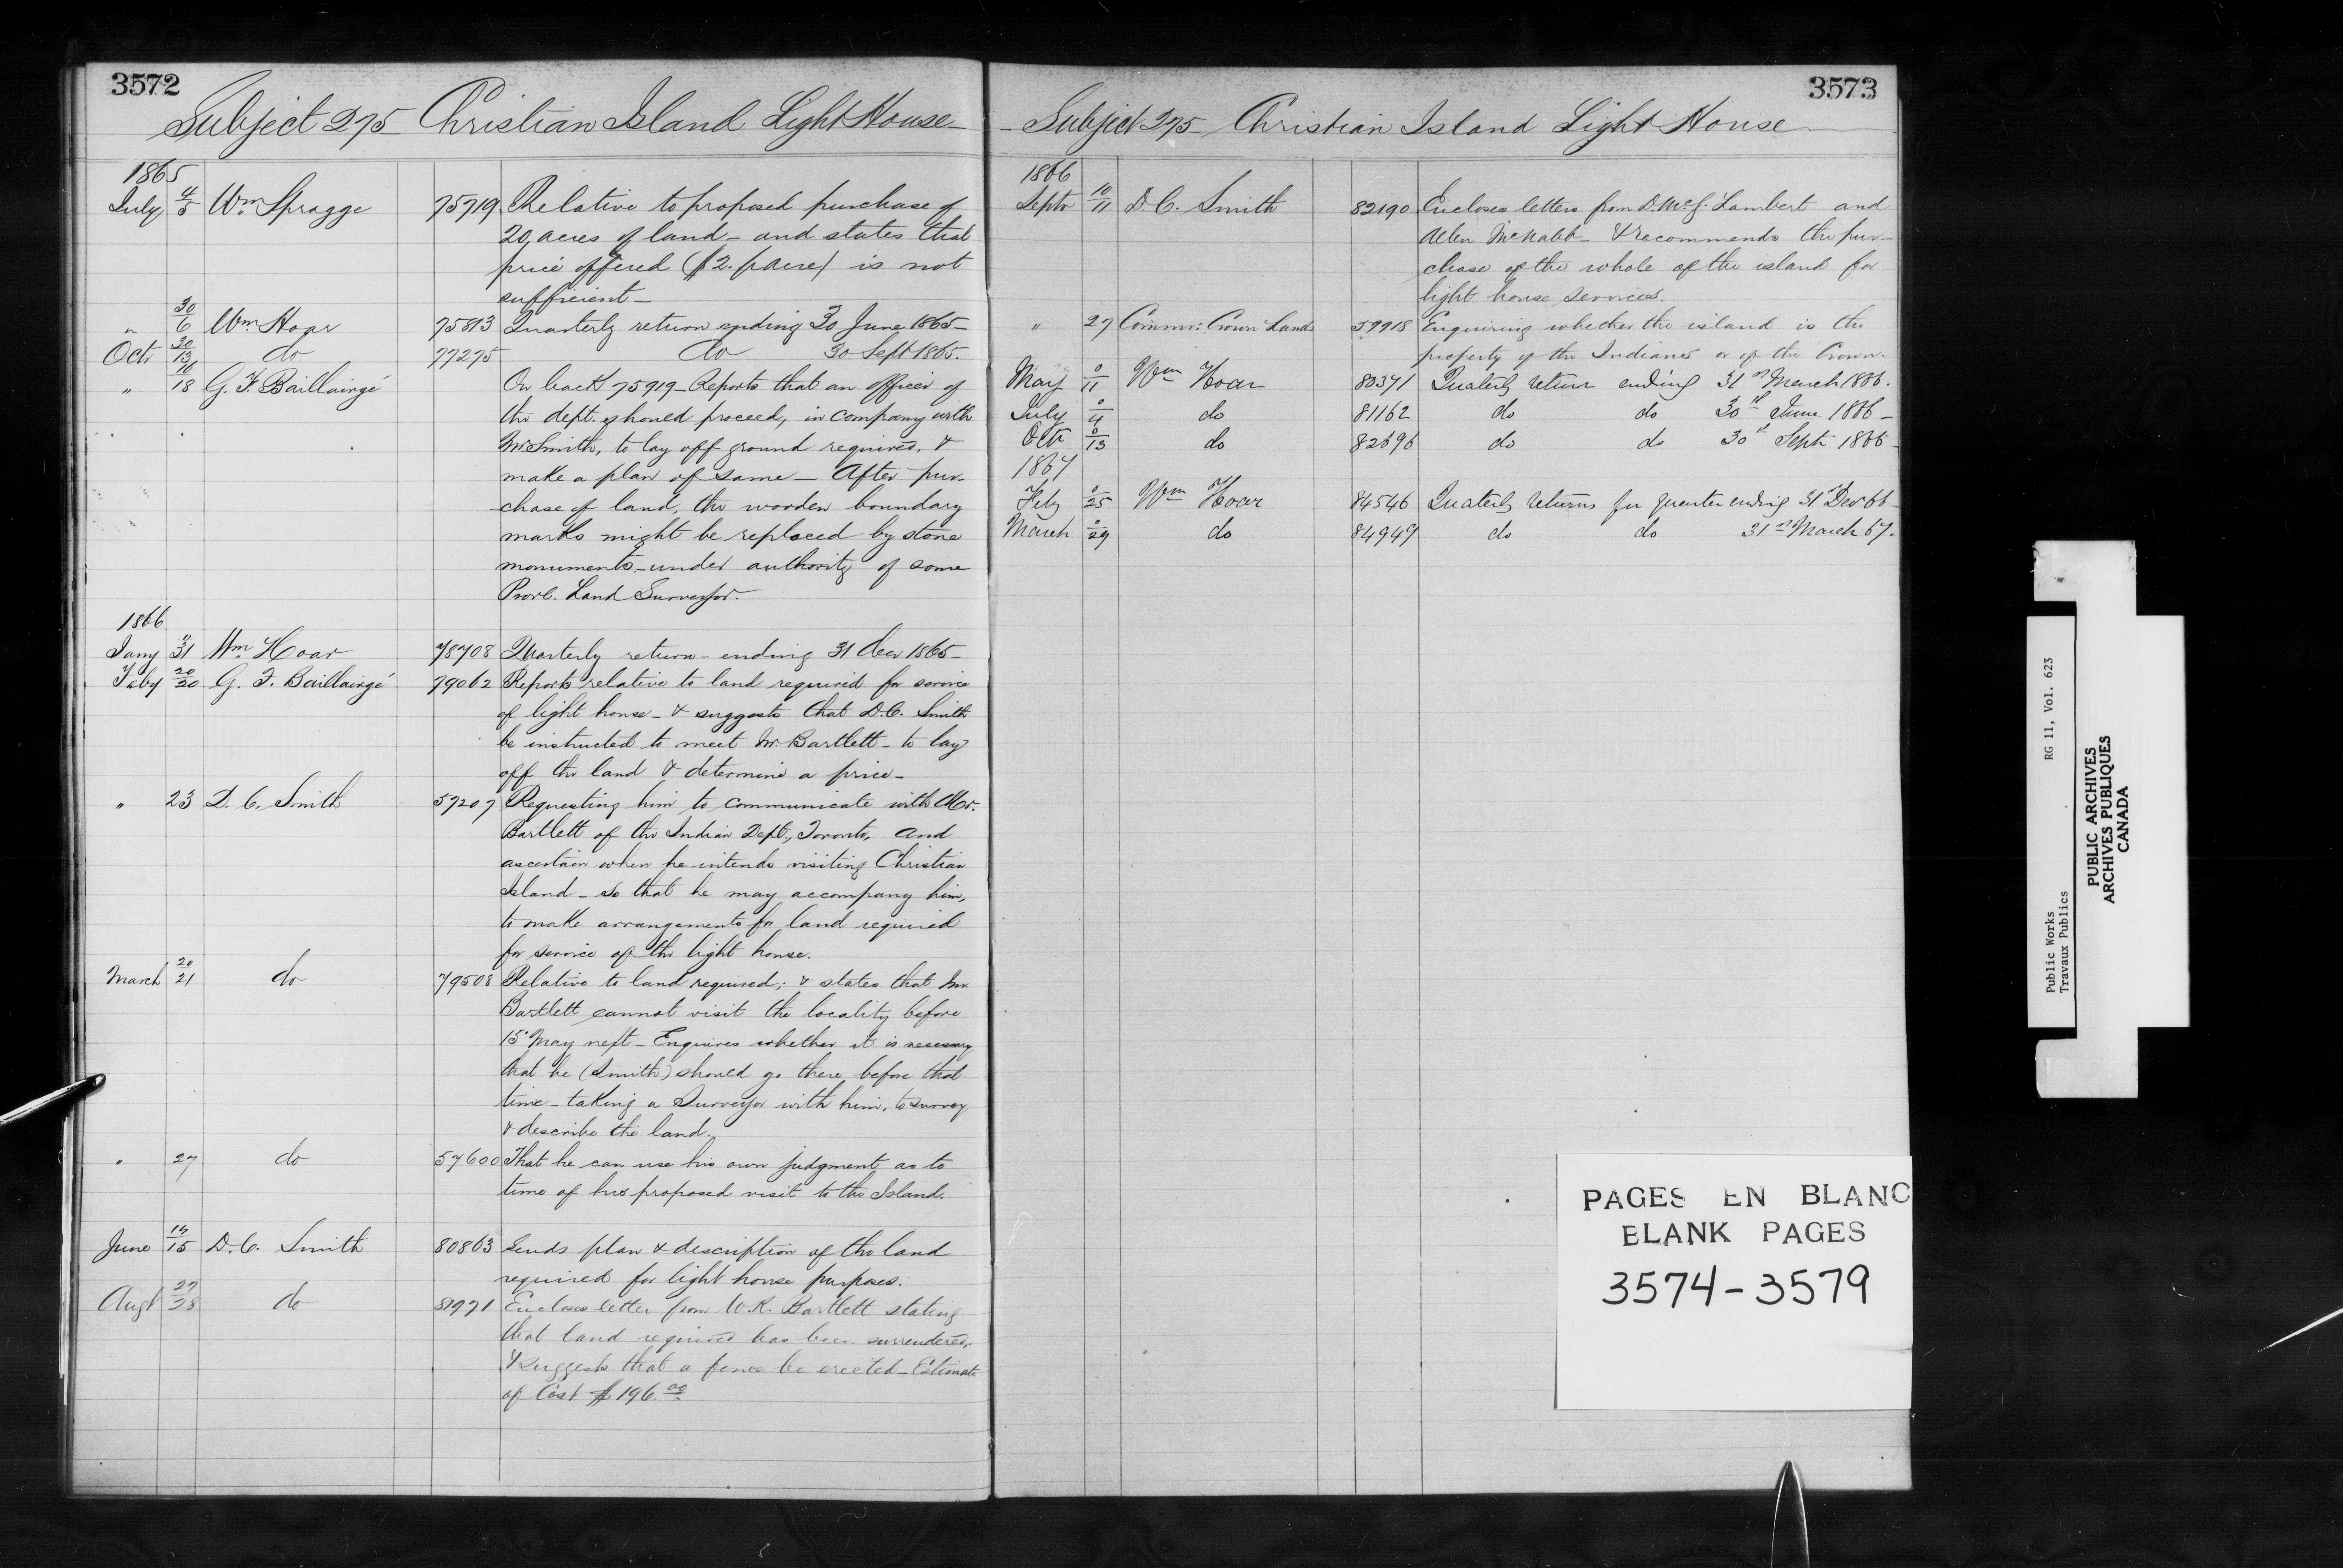 3572
Subject 275 - Christian Island Light House -
1865
July 4/5 Wm. Spragge 75719 Relative to proposed purchase of
20 acres of land - and states that
price offered ($2. p acre) is not
sufficient -
" 30/6 Wm Hoar 75813 Quarterly return ending 30 June 1865 -
Octr 30/13 do 77275 do 30 Sept 1865.
" 16/18 G. F. Baillairgé On back 75919 - Reports that an officer of
the dept. should proceed, in company with
Mr Smith, to lay off ground required, &
make a plan of same - After pur-
chase of land, the wooden boundary
marks might be replaced by stone
monuments, - under authority of some
Provl. Land Surveyor.
1866
Jany 0/31 Wm Hoar 78708 Quarterly return - ending 31 Decr 1865 -
Feby 20/20 G. F. Baillairgé 79062 Reports relative to land required for service
of light house - & suggests that D.C. Smith
be instructed to meet Mr. Bartlett - to lay
off the land & determine a price -
" 23 D. C. Smith 57207 Requesting him to communicate with Mr.
Bartlett of the Indian Dept., Toronto, and
ascertain when he intends visiting Christian
Island - so that he may accompany him,
to make arrangements for land required
for service of the light house.
March 20/21 do 79508 Relative to land required; & states that Mr.
Bartlett cannot visit the locality before
15 May next - Enquires whether it is necessary
that he (Smith) should go there before that
time - taking a Surveyor with him, to survey
& describe the land.
" 27 do 57600 That he can use his own judgment as to
time of his proposed visit to the Island.
June 14/15 D. C. Smith 80863 Sends plan & description of the land
required for light house purposes.
Augt 27/28 do 81971 Encloses letter from W. R. Bartlett stating
that land required has been surrendered.
& suggests that a fence be erected - Estimate
of Cost $196.00
3573
- Subject 275 - Christian Island Light House -
1866
Septr 10/11 D. C. Smith 82190 Encloses letters from D. McG. Lambert and
Allen McNabb - & recommends the pur-
chase of the whole of the island for
light house services.
" 27 Commr: Crown Lands 59918 Enquiring whether the island is the
property of the Indians or of the Crown.
May 0/11 Wm Hoar 80371 Quaterly return ending 31st March 1866.
July 0/4 do 81162 do do 30th June 1866 -
Octr 0/13 do 82696 do do 30th Septr 1866 -
1867
Feby 0/25 Wm Hoar 84546 Quaterly returns for quarter ending 31st Decr 66 -
March 0/29 do 84949 do do 31st March 67.
PAGES EN BLANC
BLANK PAGES
3574-3579
Public Works RG 11, Vol. 623
Travaux Publics
PUBLIC ARCHIVES
ARCHIVES PUBLIQUES
CANADA